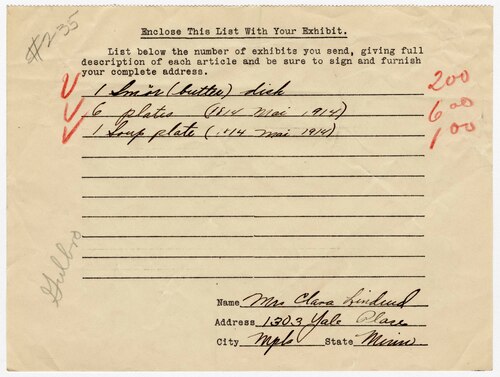 #235
Enclose This List With Your Exhibit.
List below the number of exhibits you send, giving full
description of each article and be sure to sign and furnish
your complete address.
1 Smör (butter) dish 200
6 plates (1814 Mai 1914) 600
1 Soup plate (1814 Mai 1914) 1.00
Name Mrs Clara
Address 1303 Yale Place
City Mpls State Minn